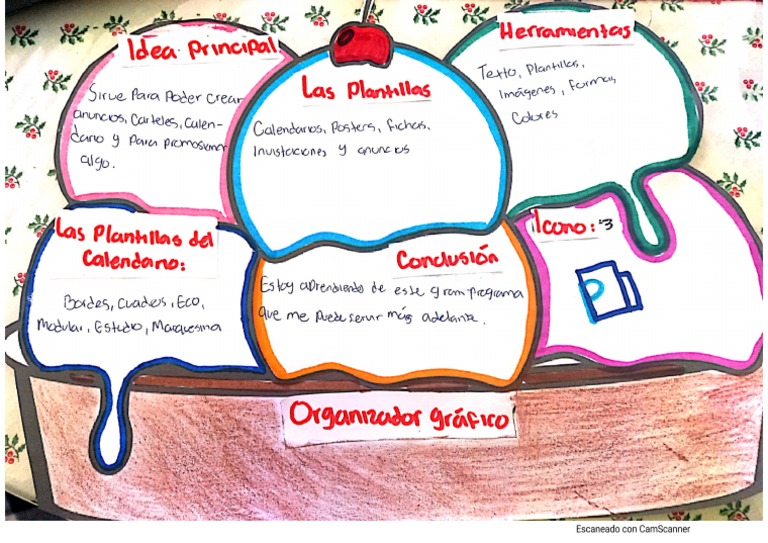 Idea Principal
Sirve Para Poder Crear
anuncios, Carteles, Calen-
dario y Para promosionar
algo.
Las Plantillas
Calendarios, Posters, fichas,
Invistaciones y anuncios
Herramientas
Texto, Plantillas,
Imágenes, formas
Colores
Las Plantillas del
Calendario:
Bordes, Cuadros, Eco,
Modular, Estudio, Marquesina
Conclusión
Estoy aprendiendo de este gram programa
que me puede servir más adelante.
Icono: :3
Organizador gráfico
Escaneado con CamScanner